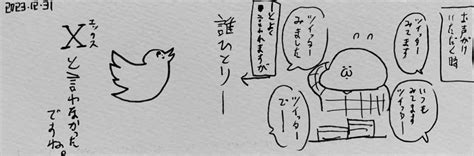 2023.12.31
お声がけ
いただく時
ツイッター
みてます
いつも
みてます
ツイッター
ツイッター
みました
ツイッター
でー
などと
言われますが
誰ひとりー
エックス
Xと言わなかった
ですね。